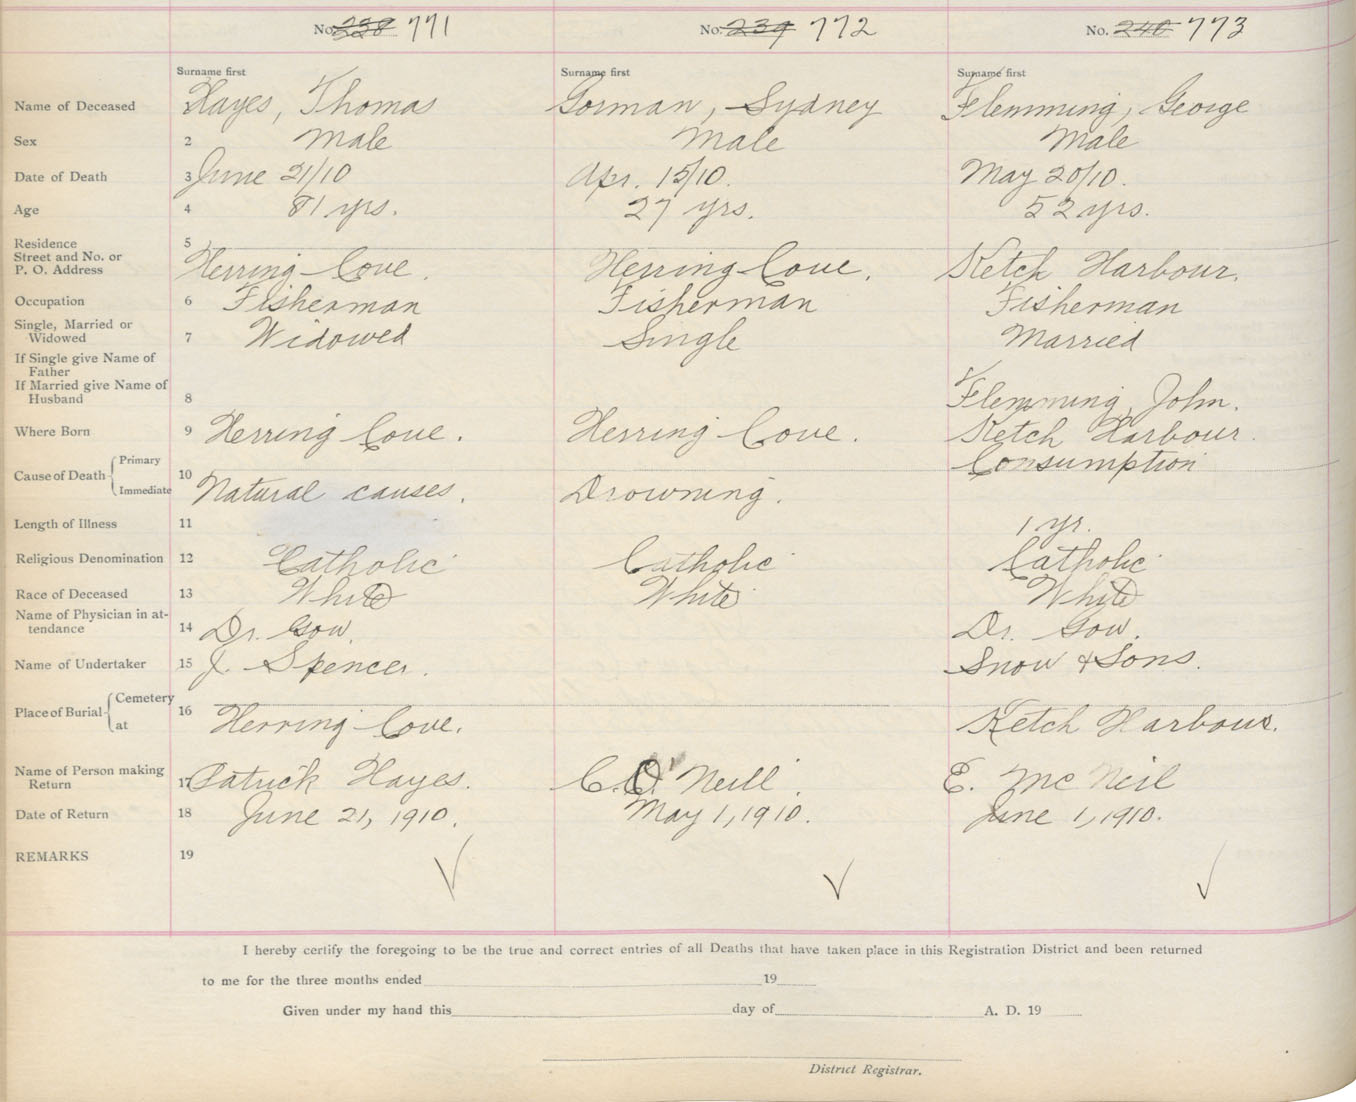 No. 238 771 No. 239 772 No. 240 773
Surname first Surname first Surname first
Name of Deceased 1 Hayes, Thomas Gorman, Sydney Flemming, George
Sex 2 Male Male Male
Date of Death 3 June 21/10 Apr. 15/10. May 20/10.
Age 4 81 yrs. 27 yrs. 52 yrs.
Residence 5
Street and No. or
P. O. Address Herring Cove. Herring Cove. Ketch Harbour.
Occupation 6 Fisherman Fisherman Fisherman
Single, Married or
Widowed 7 Widowed Single Married
If Single give Name of
Father
If Married give Name of
Husband 8 Flemming, John.
Where Born 9 Herring Cove. Herring Cove. Ketch Harbour.
Primary Consumption
Cause of Death 10
Immediate Natural causes. Drowning.
Length of Illness 11 1 yr.
Religious Denomination 12 Catholic Catholic Catholic
Race of Deceased 13 White White White
Name of Physician in at-
tendance 14 Dr. Gow. Dr. Gow.
Name of Undertaker 15 J. Spencer. Snow & Sons.
Cemetery
Place of Burial 16
at Herring Cove. Ketch Harbour.
Name of Person making
Return 17 Patrick Hayes. C. O'Neill. E. McNeil
Date of Return 18 June 21, 1910. May 1, 1910. June 1, 1910.
REMARKS 19 ✓ ✓ ✓
I hereby certify the foregoing to be the true and correct entries of all Deaths that have taken place in this Registration District and been returned
to me for the three months ended 19
Given under my hand this day of A. D. 19
District Registrar.